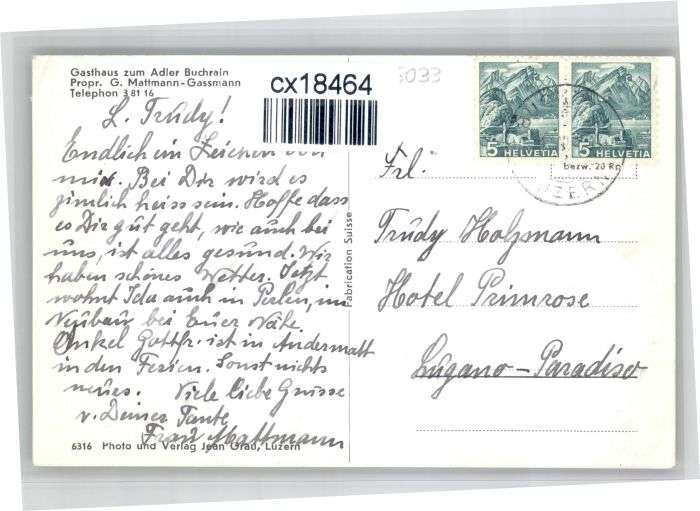 Gasthaus zum Adler Buchrain
Propr. G. Mattmann-Gassmann
Telephon 3 81 16
cx18464
L. Trudy!
Endlich ein Zeichen von
mir. Bei Dir wird es
zimlich heiss sein. Hoffe dass
es Dir gut geht, wie auch bei
uns, ist alles gesund. Wir
haben schönes Wetter. Jetzt
wohnt Ida auch in Perlen, im
Neubau bei Euer Nähe.
Onkel Gottfr. ist in Andermatt
in den Ferien. Sonst nichts
neues. Viele liebe Grüsse
v. Deiner Tante
Frau Mattmann
6316 Photo und Verlag Jean Grau, Luzern
Fabrication Suisse
5033
5 HELVETIA
5 HELVETIA
bezw. 20 Rp
LUZERN
Frl.
Trudy Holzmann
Hotel Primrose
Lugano-Paradiso